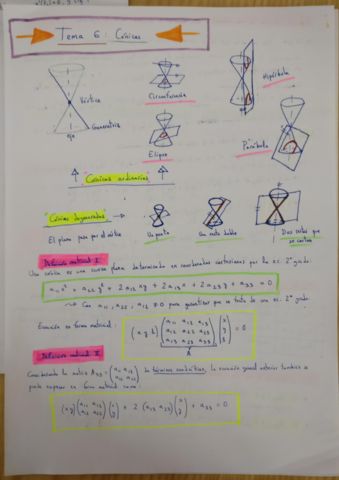 Tema 6: Cónicas
Vértice
Generatriz
eje
Circunferencia
Hipérbola
Elipse
Parábola
Cónicas ordinarias
Cónicas degeneradas →
El plano pasa por el vértice
Un punto
Una recta doble
Dos rectas que
se cortan
Definición matricial I
Una cónica es una curva plana determinada en coordenadas cartesianas por la ec. 2º grado:
a₁₁x² + a₂₂y² + 2a₁₂xy + 2a₁₃x + 2a₂₃y + a₃₃ = 0
Con a₁₁, a₂₂, a₁₂ ≠ 0 para garantizar que se trata de una ec. 2º grado.
Ecuación en forma matricial:
(x y 1) (a₁₁ a₁₂ a₁₃ a₁₂ a₂₂ a₂₃ a₁₃ a₂₃ a₃₃) (x y 1) = 0
A
Definición matricial II
Considerando la matriz A₃₃ = (a₁₁ a₁₂ a₁₂ a₂₂) de términos cuadráticos, la ecuación general anterior también se
puede expresar en forma matricial como:
(x y) (a₁₁ a₁₂ a₁₂ a₂₂) (x y) + 2 (a₁₃ a₂₃) (x y) + a₃₃ = 0